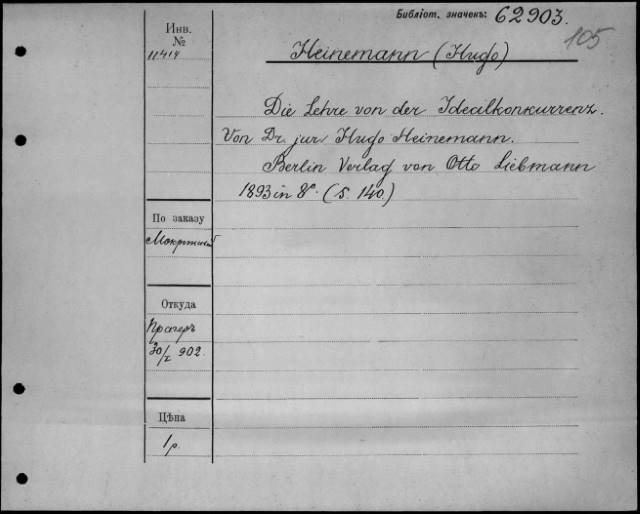 Бібліот. значекъ: 62903.
105
Инв.
№
11414
Heinemann (Hugo)
Die Lehre von der Idealkonkurrenz.
Von Dr. jur Hugo Heinemann.
Berlin Verlag von Otto Liebmann
1893 in 8º. (S. 140.)
По заказу
Откуда
Прагеръ
30/I 902.
Цѣна
1 р.